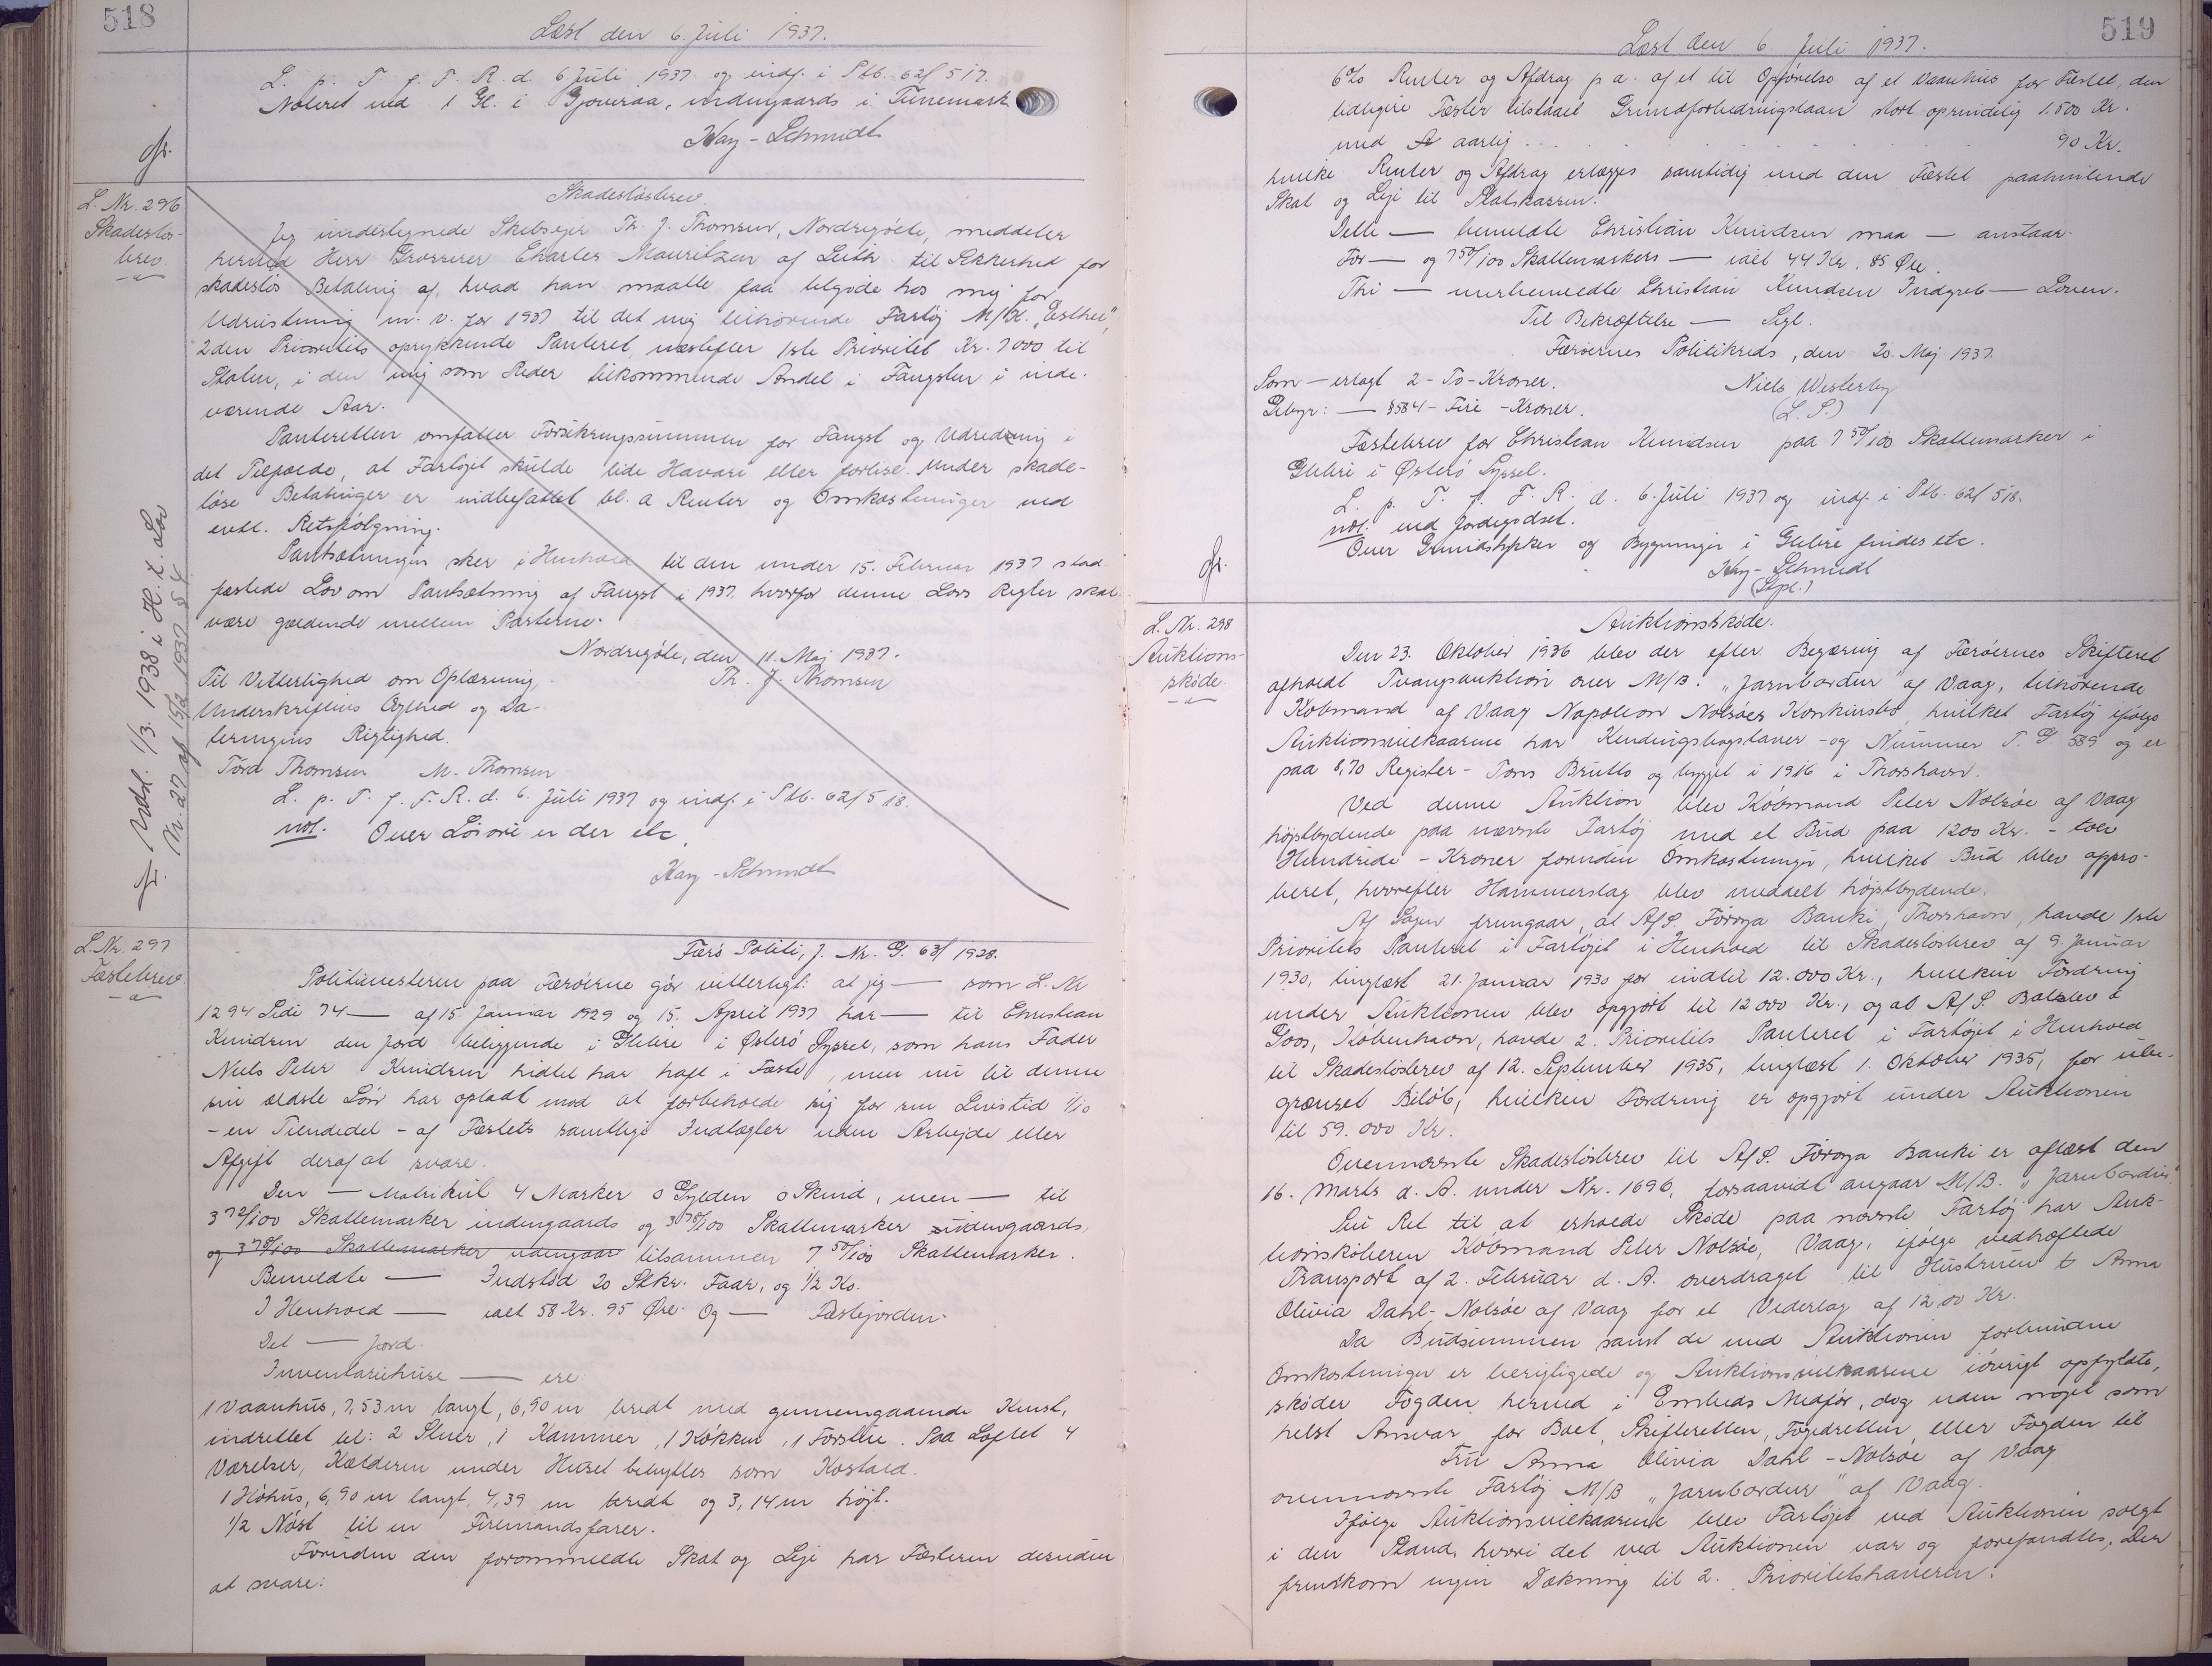 518
Læst den 6. Juli 1937.
L. p. T. f. F. R. d. 6 Juli 1937 og indf. i Ptb. 62/517.
Noteret ved 1 Gl. i Gjoveraa, indengaards i Tunemark
Kay-Schmidt
L. Nr. 296
Skadesløs-
brev.
Skadesløsbrev.
Jeg undertegnede Skibsejer Th. J. Thomsen, Nordregöte, meddeler
herved Herr Grosserer Charles Mauritzen af Leith til Sikkerhed for
skadeslös Betaling af, hvad han maatte faa tilgode hos mig for
Udrustning m. v. for 1937 til det mig tilhørende Fartøj M/K. „Esther",
2den Prioritets oprykkende Panteret, næstefter 1ste Prioritet Kr. 7000 til
Staten, i den mig som Reder tilkommende Andel i Fangsten i inde-
værende Aar.
Panteretten omfatter Forsikringssummen for Fangst og Udredning i
det Tilfælde, at Fartöjet skulde lide Havari eller forlise. Under skade-
löse Betalinger er indbefattet bl. a Renter og Omkostninger ved
evtl. Retsfölgning.
Pantsætningen sker i Henhold til den under 15. Februar 1937 stad-
fæstede Lov om Pantsætning af Fangst i 1937, hvorfor denne Lovs Regler skal
være gældende mellem Parterne.
Nordregöte, den 11. Maj 1937.
Til Vitterlighed om Oplæsning,
Th. J. Thomsen
Underskriftens Ægthed og Da-
teringens Rigtighed.
Tórd Thomsen M. Thomsen
L. p. T. f. F. R. d. 6. Juli 1937 og indf. i Ptb. 62/518.
not. Over Lösöre er der etc.
Kay-Schmidt
Udsl. 1/3 1938 i H. t. Lov
Nr. 27 af 15/2 1937 § 4.
L. Nr. 297
Fæstebrev
Færø Politi, J. Nr. G. 63/1928.
Politimesteren paa Færöerne gör vitterligt: at jeg — som L. Nr
1294 Side 74 — af 15. Januar 1929 og 15. April 1937 har — til Christian
Knudsen den Jord beliggende i Glibre i Österö Syssel, som hans Fader
Niels Peter Knudsen hidtil har haft i Fæste, men nu til denne
sin ældste Sön har opladt mod at forbeholde sig for sin Livstid 1/10
- en Tiendedel - af Fæstets samtlige Indtægter uden Arbejde eller
Afgift deraf at svare.
Den — Matrikul 4 Marker 0 Gylden 0 Skind, men — til
3 72/100 Skattemarker indengaards og 3 78/100 Skattemarker udengaards,
og 3 78/100 Skattemarker udengaar tilsammen 7 50/100 Skattemarker.
Bemeldte — Indstöd 20 Stkr. Faar, og 1/2 Ko.
I Henhold — ialt 58 Kr. 95 Øre. Og — Fæstejorden.
Det — Jord.
Inventariehuse — ere:
1 Vaanhus, 7,53 m langt, 6,90 m bredt med gennemgaaende Kvist,
indrettet til: 2 Stuer, 1 Kammer, 1 Kökken, 1 Forstue. Paa Loftet 4
Værelser, Kælderen under Huset benyttes som Kostald.
1 Höhus, 6,90 m langt, 4,39 m bredt og 3,14 m höjt.
1/2 Nöst til en Firemandsfarer.
Foruden den forommeldte Skat og Leje har Fæsteren desuden
at svare:
519
Læst den 6. Juli 1937.
6% Renter og Afdrag p.a. af et til Opförelse af et Vaanhus for Fæstet, den
tidligere Fæster tilstaaet Grundforbedringslaan stort oprindelig 1.500 Kr.
med aarlig . . . 90 Kr.
hvilke Renter og Afdrag erlægges samtidig med den Fæstet paahvilende
Skat og Leje til Statskassen.
Dette — bemeldte Christian Knudsen maa — anstaar.
For — og 7 50/100 Skattemarkers — ialt 44 Kr. 85 Øre.
Thi — merbemeldte Christian Knudsen Indgreb — Loven.
Til Bekræftelse — Segl.
Færöernes Politikreds, den 20. Maj 1937.
Som — erlagt 2 - To - Kroner.
Niels Westerby
Gebyr: — §58 4 - Fire - Kroner.
(L. S.)
Fæstebrev for Christian Knudsen paa 7 50/100 Skattemarker i
Glibre i Østerö Syssel.
L. p. T. f. F. R. d. 6. Juli 1937 og indf. i Ptb. 62/518.
not. ved Jordegodset.
Over Grundstykker og Bygninger i Glibre findes etc.
Kay-Schmidt
(Stpl.)
L. Nr. 298
Auktions-
skøde.
Auktionsskøde.
Den 23. Oktober 1936 blev der efter Begæring af Færöernes Skifteret
afholdt Tvangsauktion over M/B. „Jarnbardur" af Vaag, tilhørende
Købmand af Vaag Napoleon Nolsöes Konkursbo, hvilket Fartøj ifölge
Auktionsvilkaarene har Kendingsbogstaver -og Nummer T. G. 589 og er
paa 8,70 Register-Tons Brutto og bygget i 1916 i Thorshavn.
Ved denne Auktion blev Köbmand Peter Nolsöe af Vaag
højstbydende paa nævnte Fartöj med et Bud paa 1200 Kr. - tolv
Hundrede - Kroner foruden Omkostninger, hvilket Bud blev appro-
beret, hvorefter Hammerslag blev meddelt højstbydende.
Af Sagen fremgaar, at A/S. Föroya Banki, Thorshavn, havde 1ste
Prioritets Panteret i Fartöjet i Henhold til Skadeslösbrev af 9. Januar
1930, tinglæst 21. Januar 1930 for indtil 12.000 Kr., hvilken Fordring
under Auktionen blev opgjort til 12000 Kr., og at A/S. Balslev &
Goos, Köbenhavn, havde 2. Prioritets Panteret i Fartöjet i Henhold
til Skadeslösbrev af 12. September 1935, tinglæst 1. Oktober 1935, for ube-
grænset Belöb, hvilken Fordring er opgjort under Auktionen
til 59.000 Kr.
Ovennævnte Skadeslösbrev til A/S. Föroya Banki er aflæst den
16. Marts d. A. under Nr. 1696, forsaavidt angaar M/B. „Jarnbardur".
Sin Ret til at erholde Skøde paa nævnte Fartöj har Auk-
tionsköberen Köbmand Peter Nolsöe, Vaag, ifölge vedhæftede
Transport af 2. Februar d. A. overdraget til Hustruen Anna
Olivia Dahl-Nolsöe af Vaag for et Vederlag af 1200 Kr.
Da Budsummen samt de med Auktionen forbundne
Omkostninger er berigtigede og Auktionsvilkaarene iövrigt opfyldte,
sköder Fogden herved i Embeds Medför, dog uden noget som
helst Ansvar for Boet, Skifteretten, Fogedretten, eller Fogden til
Fru Anna Olivia Dahl-Nolsöe af Vaag
ovennævnte Fartøj M/B „Jarnbardur" af Vaag.
Ifölge Auktionsvilkaarene blev Fartöjet ved Auktionen solgt
i den Stand, hvori det ved Auktionen var og forefandtes, Der
fremkom ingen Dækning til 2. Prioritetshaveren.